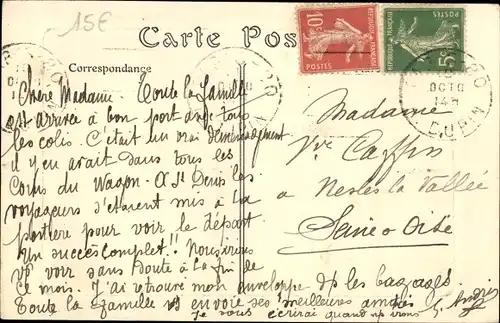 15€
Carte Pos
Correspondance
10c
POSTES
REPUBLIQUE FRANÇAISE
5c
POSTES
OCTO
14H
DUPIN
Chère Madame Toute la famille
est arrivée à bon port avec tous
les colis. C'était un vrai déménagement
il y en avait dans tous les
coins du Wagon - A St Denis les
voyageurs s'étaient mis à la
portière pour voir le départ
Un succès complet!! Nous irions
vs voir sans doute à la fin de
ce mois. J'ai retrouvé mon enveloppe ds les bagages
Toute la famille vs envoie ses meilleures amitiés
Je vous écrirai quand ns irons
Madame
Vve Caffin
à Nesles la Vallée
Seine & Oise